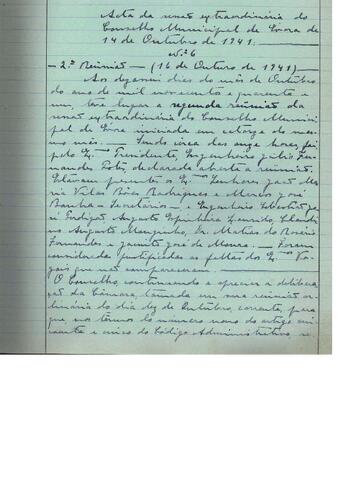 Acta da sessão extraordinária do
Conselho Municipal de Évora de
14 de Outubro de 1941.
Nº 6
— 2.ª Reunião — (16 de Outubro de 1941) —
Aos dezasseis dias do mês de Outubro
do ano de mil novecentos e quarenta e
um, teve lugar a segunda reunião da
sessão extraordinária do Conselho Munici-
pal de Évora iniciada em catorze do mes-
mo mês. — Sendo cerca das onze horas, foi
pelo Ex.mo Presidente, Engenheiro Júlio Fer-
nandes, declarada aberta a reunião.
Estavam presentes os Ex.mos Senhores José Ma-
ria Vilas Boas Rodrigues e Marcos José
Banha — Secretários — e Engenheiro
Augusto
Augusto Dr. Matias do Rosário
Fernandes e Jacinto José de Moura. — Foram
consideradas justificadas as faltas dos Ex.mos Vo-
gais que não compareceram. —
O Conselho, continuando a apreciar a delibera-
ção da Câmara, tomada em sua reunião or-
dinária do dia dez de Outubro, corrente, para
que, nos termos do número nono do artigo cin-
coenta e cinco do Código Administrativo,